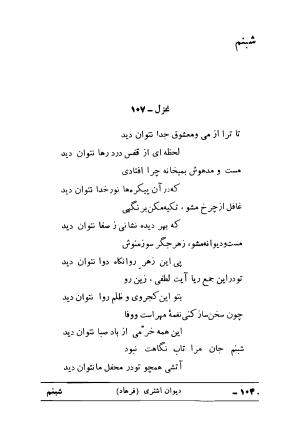 شبنم
غزل - ۱۰۷
تا ترا از می ومعشوق جدا نتوان دید
لحظه ای از قفس درد رها نتوان دید
مست و مدهوش بمیخانه چرا افتادی
که در آن پیکره‌ها نورخدا نتوان دید
غافل ازچرخ مشو، تکیه‌مکن برنگهی
که بهر دیده نشانی ز صفا نتوان دید
مست‌ودیوانه‌مشو، زهرجگر سوزمنوش
پی این زهر روانکاه دوا نتوان دید
تودراین جمع ریا آیت لطفی، زین رو
بتو این کجروی و ظلم روا نتوان دید
چون سخن‌سازکنی نغمهٔ مهراست ووفا
این همه خرّمی از باد صبا نتوان دید
شبنم جان مرا تاب نگاهت نبود
آتشی همچو تودر محفل مانتوان دید
شبنم دیوان اشتری (فرهاد) - ۱۰۴